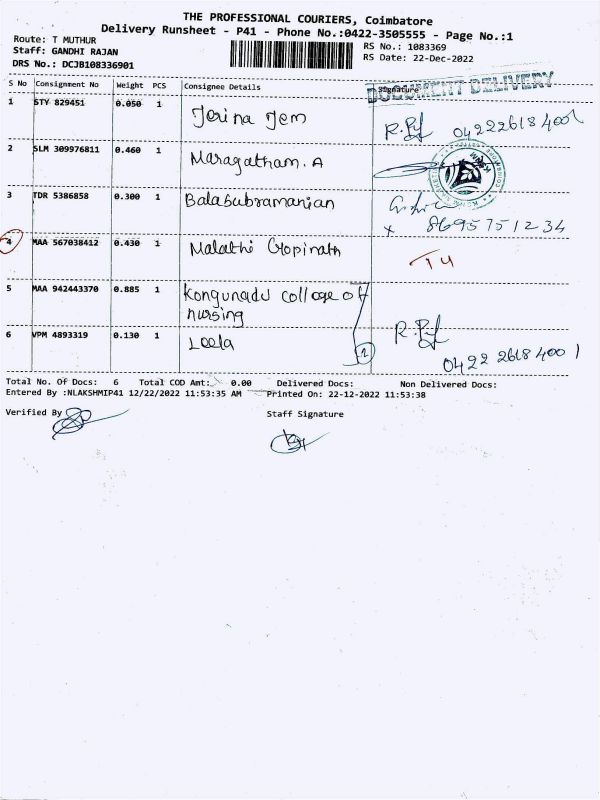 THE PROFESSIONAL COURIERS, Coimbatore
Delivery Runsheet - P41 - Phone No.:0422-3505555 - Page No.:1
Route: T MUTHUR RS No.: 1083369
Staff: GANDHI RAJAN RS Date: 22-Dec-2022
DRS No.: DCJB108336901
S No Consignment No Weight PCS Consignee Details Signature
DOCUMENT DELIVERY
1 STY 829451 0.050 1 Jerina Jem
042226184001
2 SLM 309976811 0.460 1 Maragatham. A
3 TDR 5386858 0.300 1 Balasubramanian
x 8695751234
4 MAA 567038412 0.430 1 Malathi Gopinath
5 MAA 942443370 0.885 1 Kongunadu college of
nursing
6 VPM 4893319 0.130 1 Leela
0422 2618 4001
Total No. Of Docs: 6 Total COD Amt: 0.00 Delivered Docs: Non Delivered Docs:
Entered By :NLAKSHMIP41 12/22/2022 11:53:35 AM Printed On: 22-12-2022 11:53:38
Verified By Staff Signature